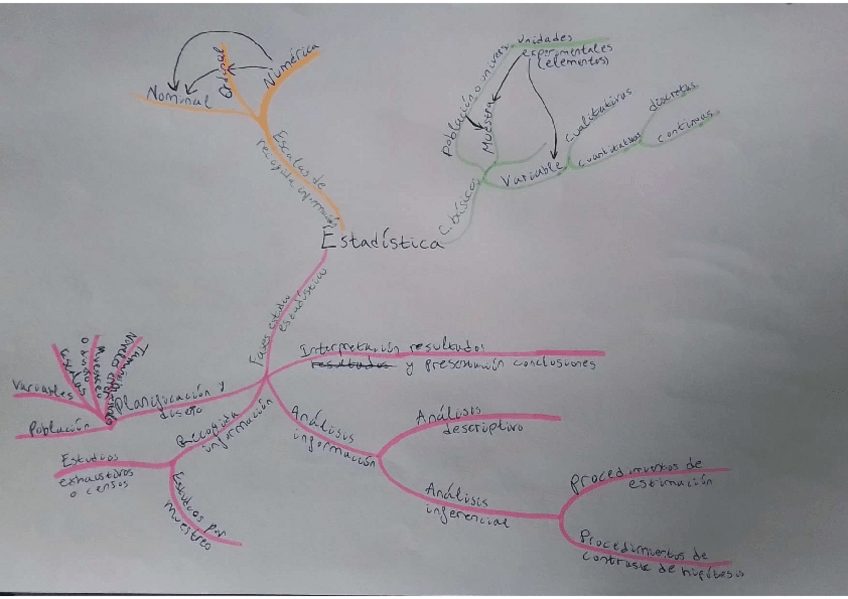 Estadística
Escalas de
recogida información
Nominal
Ordinal
Numérica
C. básicos
Población o universo
Muestra
unidades
experimentales
(elementos)
Variable
cualitativas
cuantitativas
discretas
continuas
Fases estudio
estadístico
Planificación y
diseño
Variables
Población
Recogida
información
Estudios
exhaustivos
o censos
Estudios por
muestreo
Análisis
información
Análisis
descriptivo
Análisis
inferencial
Procedimientos de
estimación
Procedimientos de
contraste de hipótesis
Interpretación resultados
resultados y presentación conclusiones